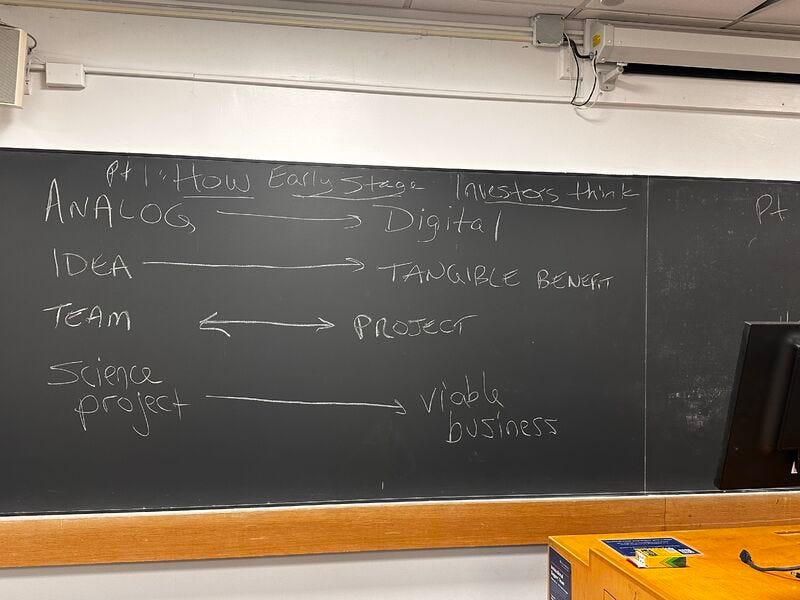 Pt 1: How Early Stage Investors think
ANALOG → Digital
IDEA → TANGIBLE BENEFIT
TEAM ↔ PROJECT
Science project → viable business
Pt